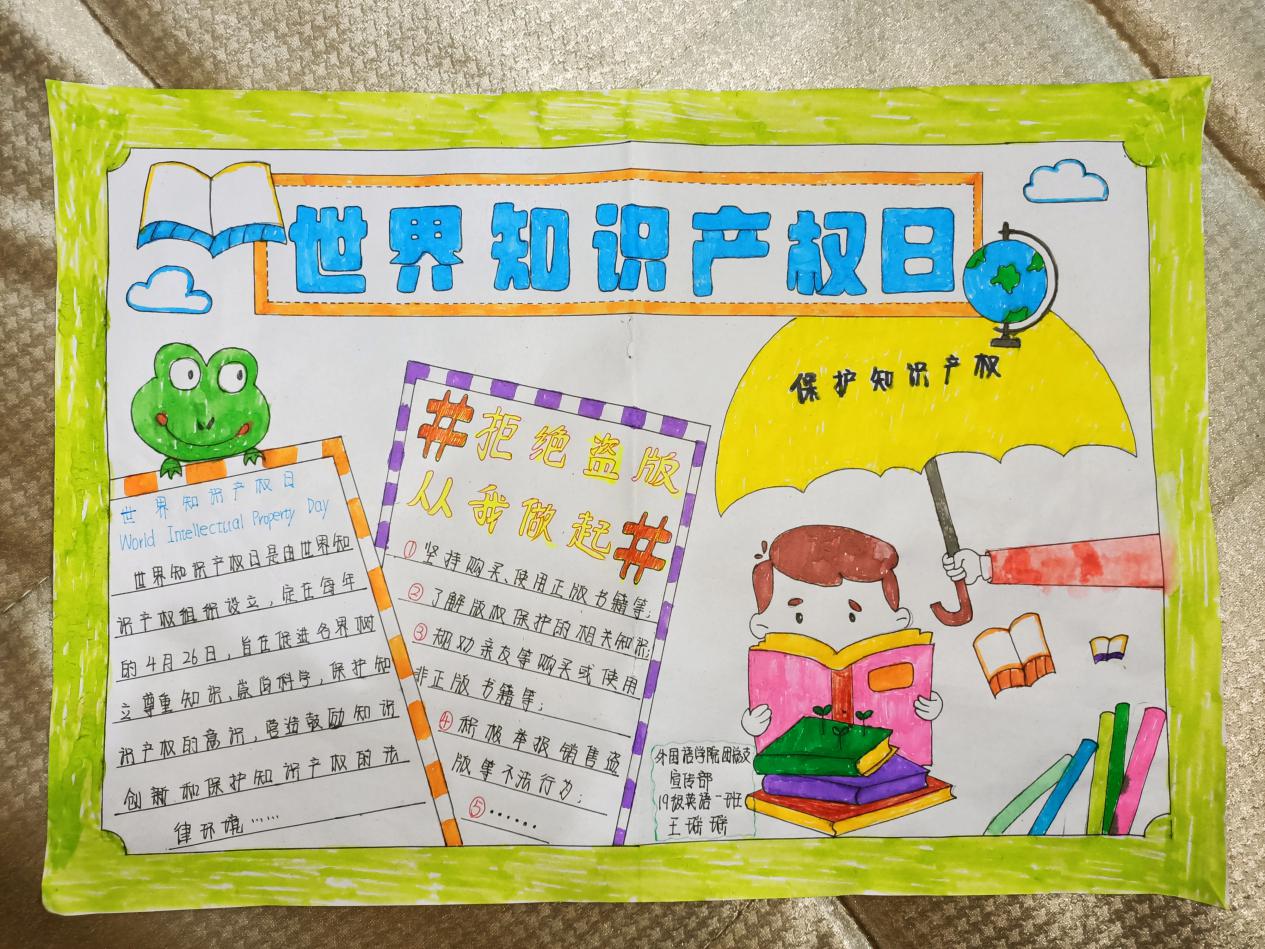 世界知识产权日
保护知识产权
世界知识产权日
World Intellectual Property Day
世界知识产权日是由世界知
识产权组织设立,定在每年
的4月26日,旨在促进各界树
立尊重知识、崇尚科学,保护知
识产权的意识,营造鼓励知识
创新和保护知识产权的法
律环境……
#拒绝盗版
从我做起#
①坚持购买、使用正版书籍等;
②了解版权保护的相关知识;
③规劝亲友等购买或使用
非正版书籍等;
④积极举报销售盗
版等不法行为;
⑤……
外国语学院团总支
宣传部
19级英语一班
王瑞瑞